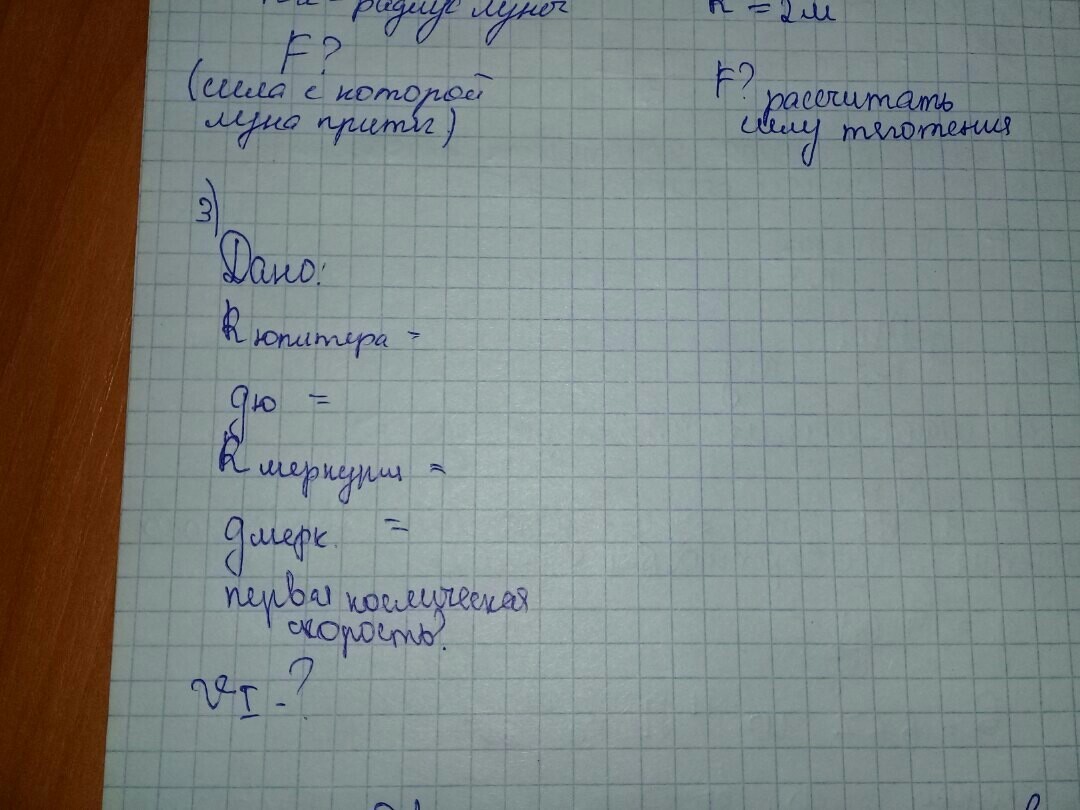 радиус луны
R = 2м
F?
(сила с которой
луна притяг)
F? рассчитать
силу тяготения
3)
Дано:
R юпитера =
gю =
R меркурия =
g мерк. =
первая космическая
скорость?
vI - ?